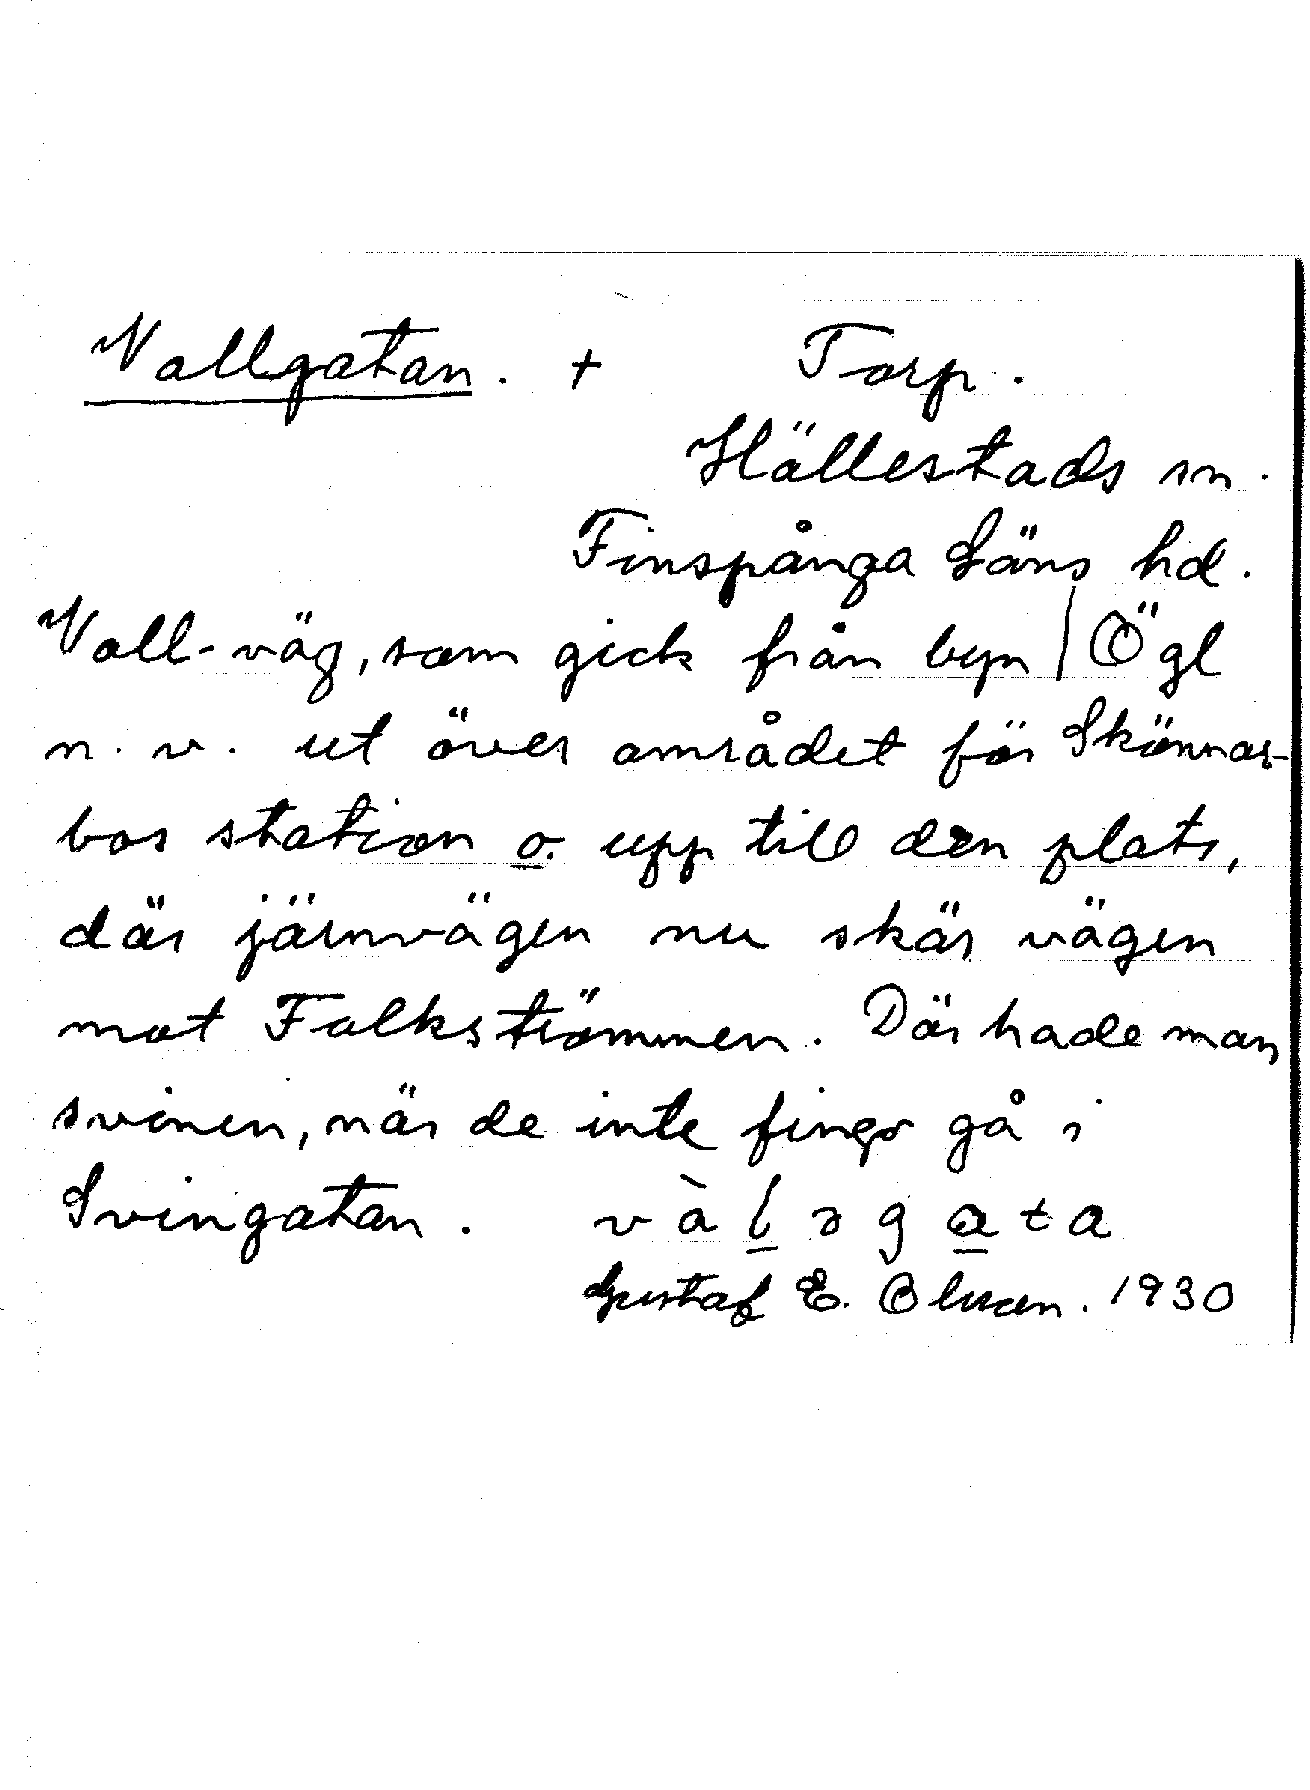 Vallgatan. + Torp.
Hällestads sn.
Finspånga Läns hd.
Vall-väg, som gick från byn | Ögl
n. v. ut över området för Skönnar-
bos station o. upp till den plats,
där järnvägen nu skär vägen
mot Falkströmmen. Där hade man
svinen, när de inte fingo gå i
Svingatan. v à l ə g a t a
Gustaf E. Olsson. 1930